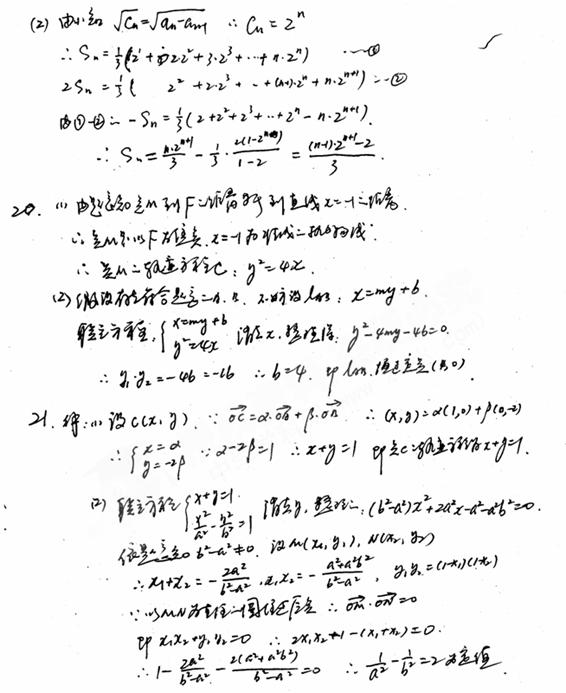 (2) 由小知 √Cn=√an-an+1 ∴ Cn=2^n
∴ Sn=1/3(1·2^1+2·2^2+3·2^3+…+n·2^n) …①
2Sn=1/3( 2^2+2·2^3+…+(n-1)·2^n+n·2^(n+1)) …②
由①-②: -Sn=1/3(2+2^2+2^3+…+2^n-n·2^(n+1)).
∴ Sn=n·2^(n+1)/3-1/3·2(1-2^n)/(1-2)=((n-1)·2^(n+1)-2)/3.
20. (1) 由题意知点M到F的距离等于到直线x=-1的距离.
∴点M是以F为焦点,x=-1为准线的抛物线.
∴点M的轨迹方程C: y²=4x.
(2)假设存在符合题意的A、B.不妨设lAB: x=my+b.
联立方程,{x=my+b y²=4x 消去x,整理得: y²-4my-4b=0.
∴ y₁·y₂=-4b=-16 ∴b=4. 即lAB恒过定点(4,0)
21.解:(1)设C(x,y). ∵ OC=α·OA+β·OB ∴ (x,y)=α(1,0)+β(0,-2)
∴{x=α y=-2β ∵α-2β=1 ∴x+y=1 即点C的轨迹方程为x+y=1.
(2) 联立方程{x+y=1 x²/a²-y²/b²=1 消去y,整理得:(b²-a²)x²+2a²x-a²-a²b²=0.
依题意知 b²-a²≠0. 设M(x₁,y₁), N(x₂,y₂)
∴x₁+x₂=-2a²/(b²-a²),x₁x₂=-(a²+a²b²)/(b²-a²), y₁y₂=(1-x₁)(1-x₂)
∵以MN为直径的圆经过原点 ∴OM·ON=0
即 x₁x₂+y₁y₂=0 ∴2x₁x₂+1-(x₁+x₂)=0.
∴1-2a²/(b²-a²)-2(a²+a²b²)/(b²-a²)=0 ∴1/a²-1/b²=2为定值